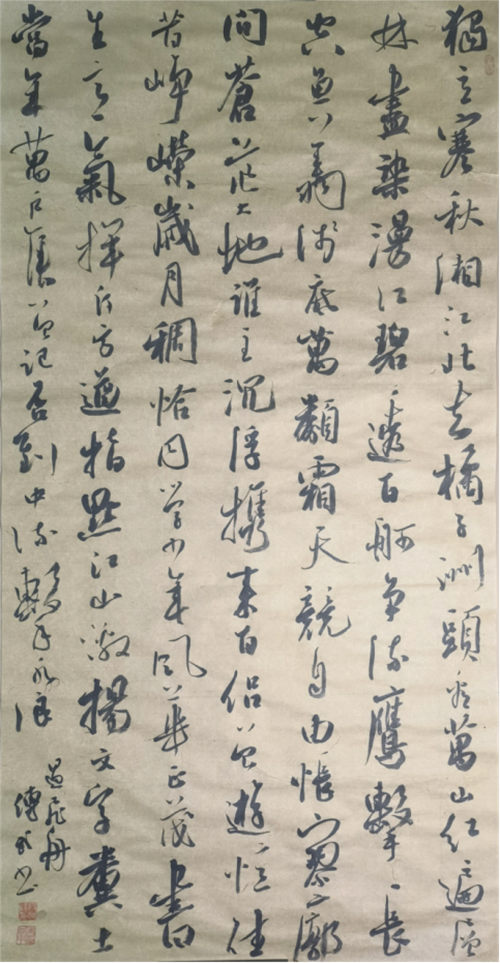 獨立寒秋湘江北去橘子洲頭看萬山紅遍層
林盡染漫江碧透百舸爭流鷹擊長
空魚翔淺底萬類霜天競自由悵寥廓
問蒼茫大地誰主沉浮攜來百侶曾遊憶往
昔崢嶸歲月稠恰同學少年風華正茂書
生意氣揮斥方遒指點江山激揚文字糞土
當年萬户侯曾記否到中流擊水浪
遏飛舟
傅書